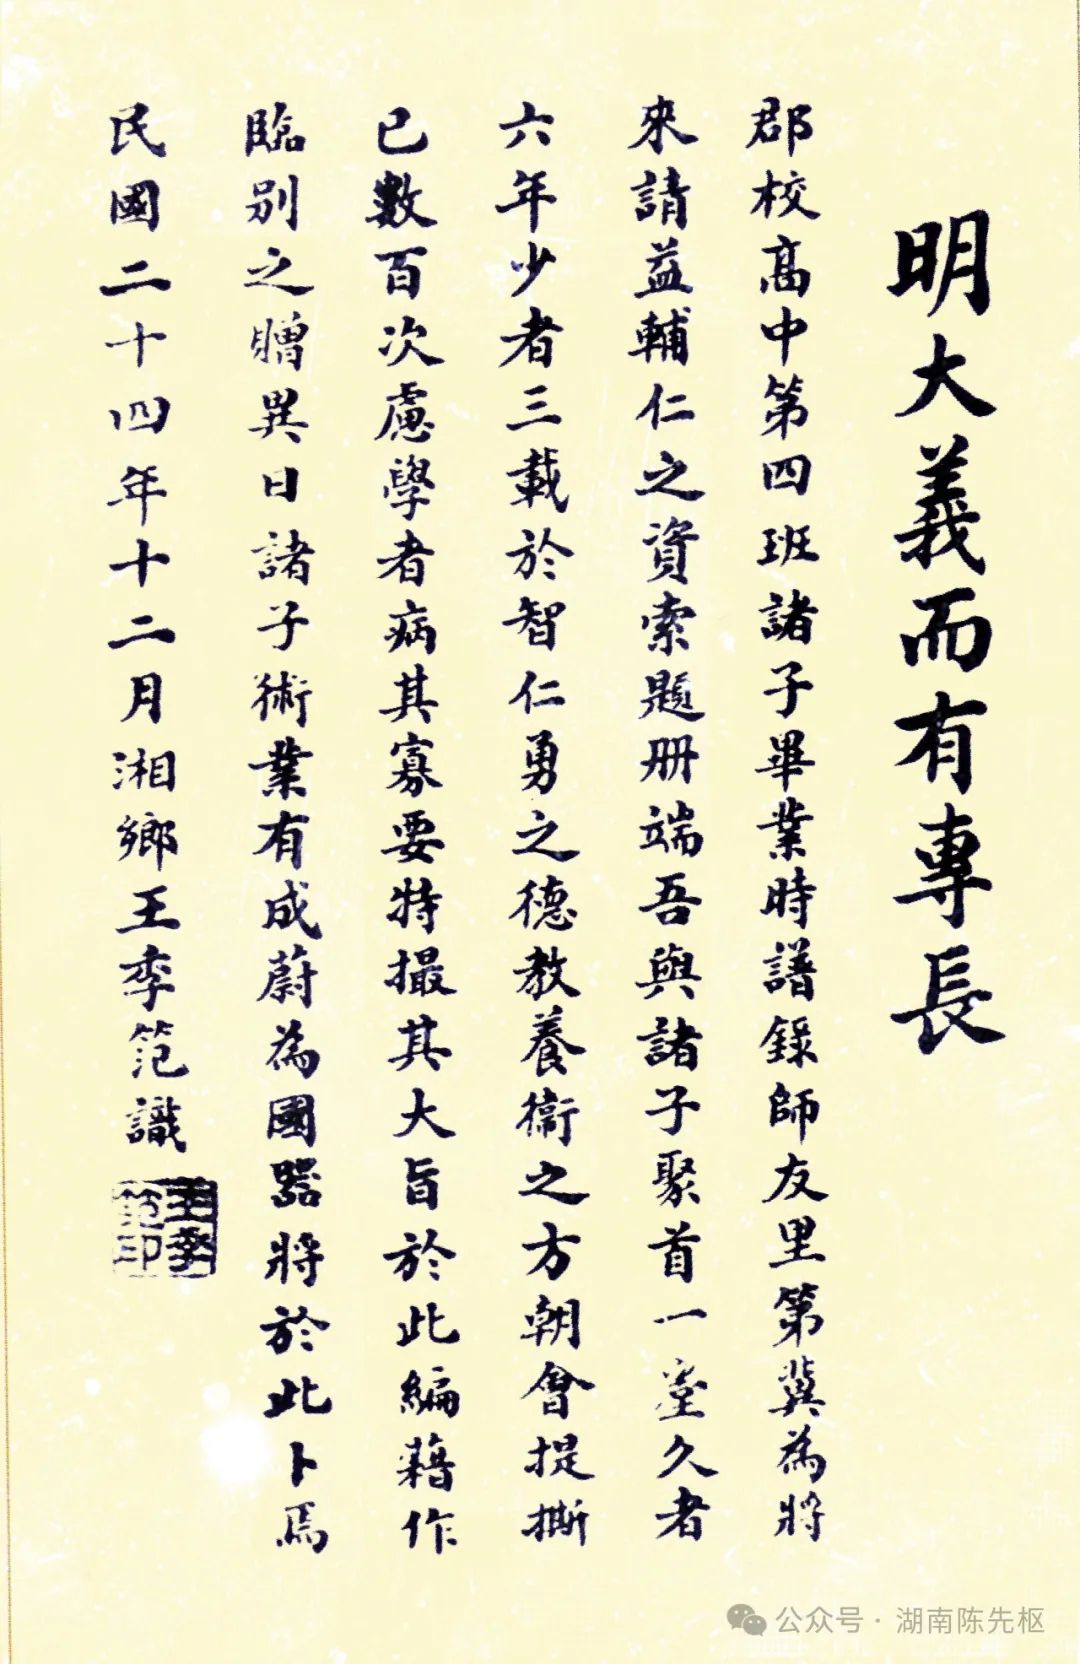 明大義而有專長
郡校高中第四班諸子畢業時譜錄師友里第冀為將
來請益輔仁之資索題册端吾與諸子聚首一堂久者
六年少者三載於智仁勇之德教養衛之方朝會提撕
已數百次慮學者病其寡要特撮其大旨於此編藉作
臨別之贈異日諸子術業有成蔚為國器將於此卜焉
民國二十四年十二月湘鄉王季范識
王季范印
公众号·湖南陈先枢